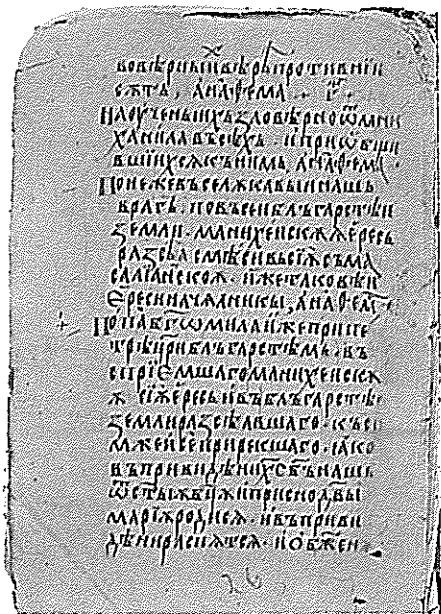 вовѣрныихвѣрѣ противнїи
сѫтъ, анаѳема · г҃·
Наоученыихъ ѕловѣрно ѿ мани
хаила въсѣхъ · и приѡбщи
вшиихсѧ къ нимъ, анаѳема ·
Понеже вьселѫкавыи нашь
врагь · по въсеи блъгарстѣи
земли · манихеискѫѫ ересь
разсѣа смѣсивь сїѫ съ ма
салїанскоѫ · иже таковѣи
Ереси начѧлникы, анаѳема
Попа бг҃ѡмила иже при пе
трѣ цри блъгарстѣмь · въ
спрїемшаго манихеискѫ
ѫ сїѫ ересь и въ блъгарстѣи
земли разсѣавшаго · къ се
мꙋже и се прирекшаго · ꙗко
въ привидѣни х҃с б҃ъ нашь
ѿ ст҃ыѫ бц҃ѫ и приснодв҃ы
марїѫ родисѧ · и въ приви
дѣни распѧтсѧ · и обжен
26